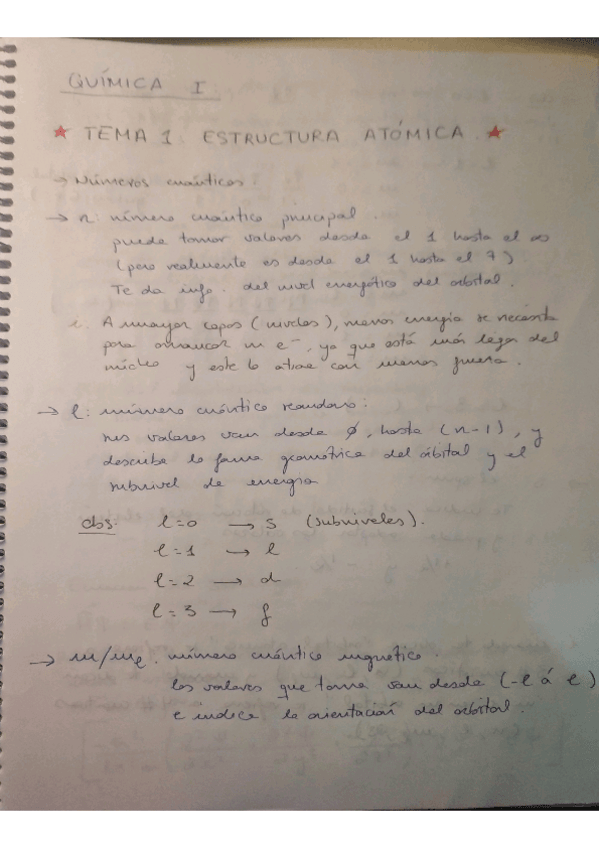 QUÍMICA I
★ TEMA 1: ESTRUCTURA ATÓMICA. ★
→ Números cuánticos:
→ n: número cuántico principal.
puede tomar valores desde el 1 hasta el ∞
(pero realmente es desde el 1 hasta el 7)
Te da info. del nivel energético del orbital.
A mayor capas (niveles), menos energía se necesita
para arrancar un e⁻, ya que está más lejos del
núcleo y este lo atrae con menos fuerza.
→ l: número cuántico secundario:
sus valores van desde ø, hasta (n-1), y
describe la forma geométrica del órbital y el
subnivel de energía
obs: l=0 → s (subniveles).
l=1 → l
l=2 → d
l=3 → f
→ m/mₑ: número cuántico magnético.
los valores que toma van desde (-l á l)
e indica la orientación del orbital.